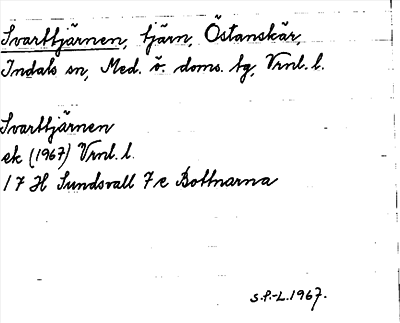 Svarttjärnen, tjärn, Östanskär,
Indals sn, Med. ö. doms. tg, Vrnl. l.
Svarttjärnen
ek (1967) Vrnl. l.
17 H Sundsvall 7 c Bottnarna
S.P.-L. 1967.